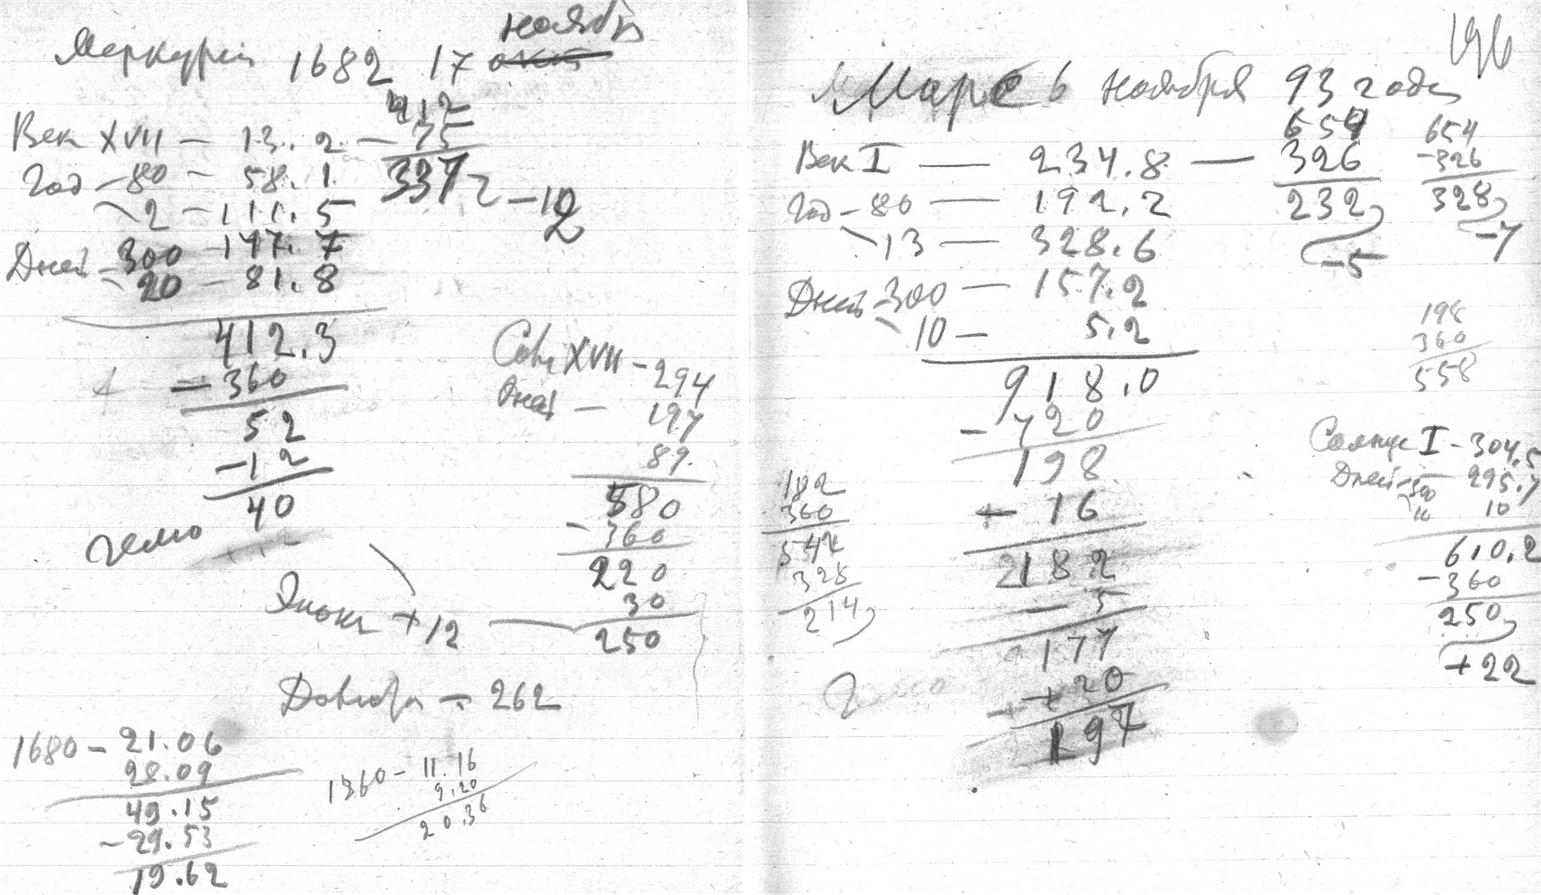 Меркурий 1682 17 ноябр
окт
412
Век XVII – 13. 2 – 75
337
Год – 80 – 58. 1
2 – 12
2 – 111. 5
Дней – 300 – 147. 7
20 – 81. 8
412.3
– 360
52
– 12
40
гелио
Солн XVII – 294
Дней – 197
89.
580
– 360
220
30
250
+ 12
– 262
1680 – 21.06
28.09
49.15
– 29.53
19.62
1860 – 11.16
9.20
20.36
196
Марс 6 ноября 93 года
654
Век I — 234.8 — 326
232
– 5
654
– 326
328
– 7
Год – 80 — 192.2
13 — 328.6
Дней – 300 — 157.2
10 – 5.2
918.0
– 720
198
+ 16
2182
– 5
177
+ 20
197
182
360
542
328
214
198
360
558
Солнце I – 304.5
Дней – 300 295.7
10 10
610.2
– 360
250
+ 22